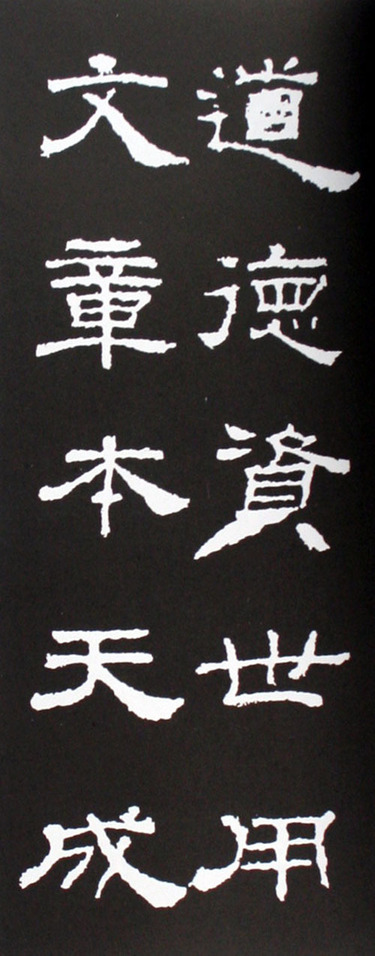 道德資世用
文章本天成